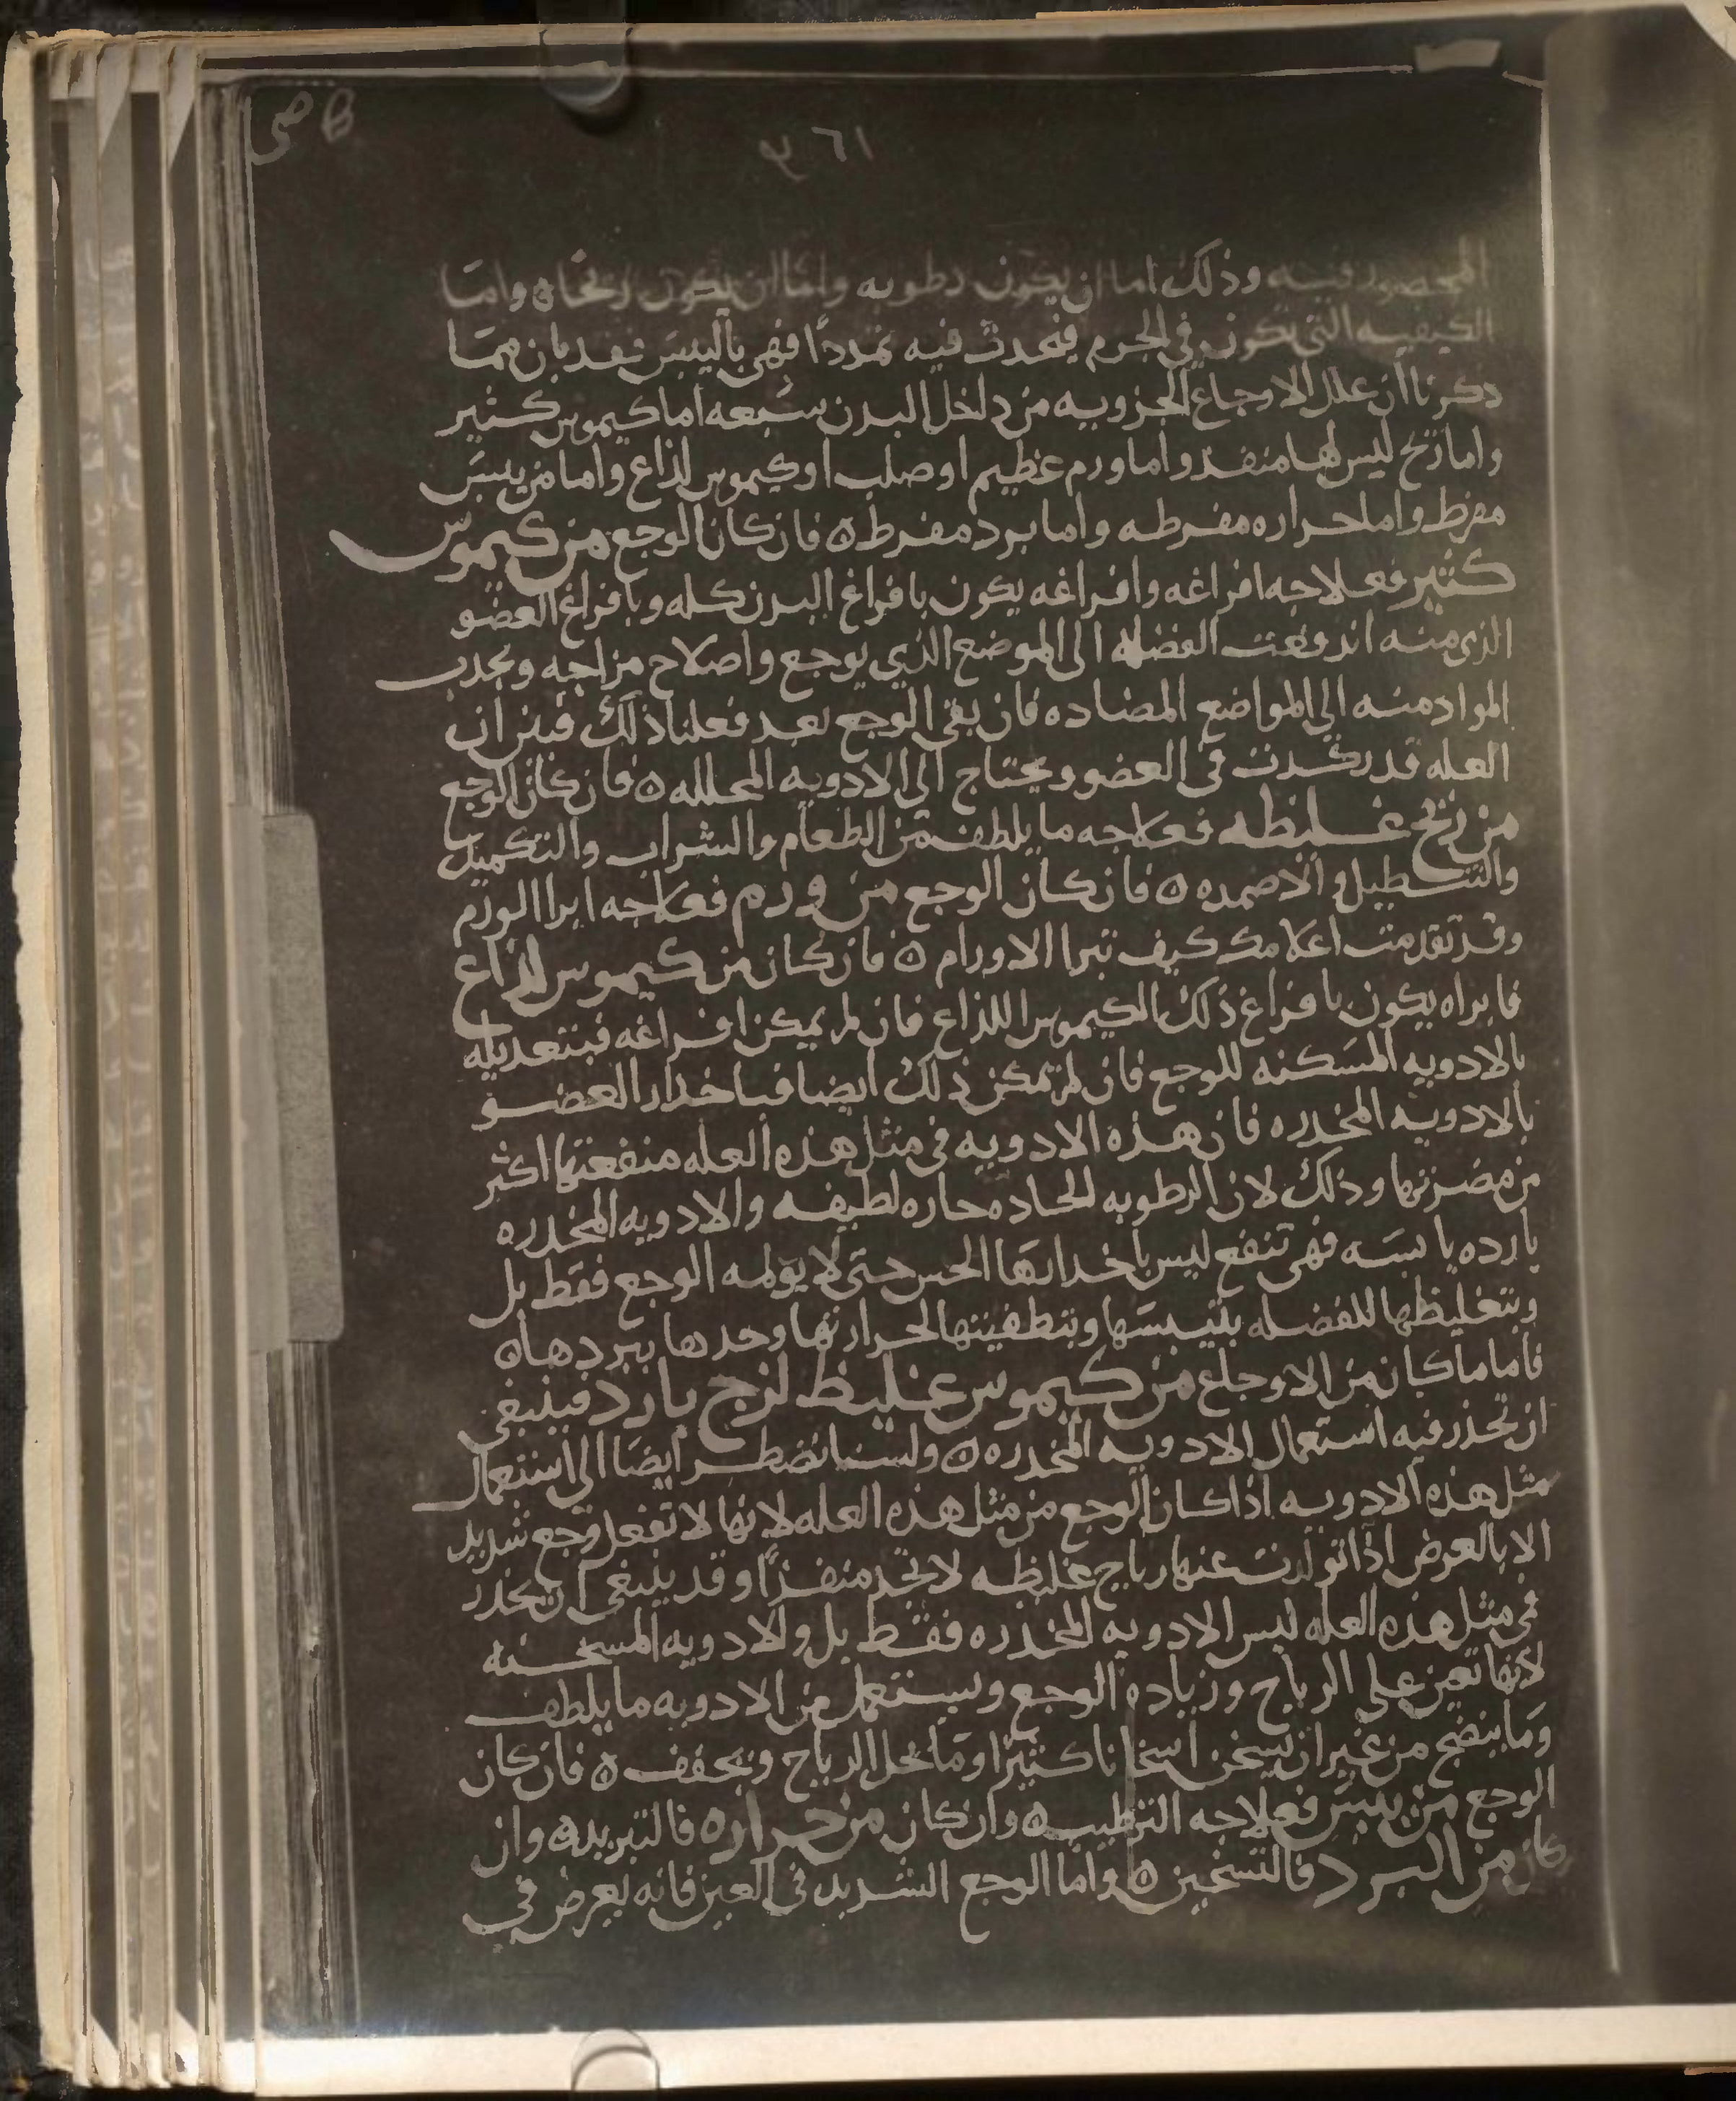 ١٦١
المحصور فيه وذلك اما ان يكون رطوبه واما ان يكون ريحا ه واما
الكيفيه التي تكون في الجرم فتحدث فيه تمددا فهي باليبس فقد بان مما
ذكرنا ان علل الاوجاع الجزويه من داخل البدن سبعه اما كيموس كثير
واما ريح ليس لها منفذ واما ورم عظيم او صلب او كيموس لذاع واما من يبس
مفرط واما حراره مفرطه واما برد مفرط ه فان كان الوجع من كيموس
كثير فعلاجه افراغه وافراغه يكون بافراغ البدن كله وبافراغ العضو
الذي منه اندفعت الفضله الى الموضع الذي يوجع واصلاح مزاجه وبجذب
المواد منه الى المواضع المضاده فان بقي الوجع بعد فعلنا ذلك فبين ان
العله قد ركدت في العضو ويحتاج الى الادويه المحلله ه فان كان الوجع
من ريح غليظه فعلاجه ما يلطف من الطعام والشراب والتكميد
والتنطيل والاضمده ه فان كان الوجع من ورم فعلاجه ابرا الورم
وقد تقدمت اعلامك كيف تبرا الاورام ه فان كان من كيموس لذاع
فابراه يكون بافراغ ذلك الكيموس اللذاع فان لم يمكن افراغه فبتعديله
بالادويه المسكنه للوجع فان لم يمكن ذلك ايضا فباخدار العضو
بالادويه المخدره فان هذه الادويه في مثل هذه العله منفعتها اكثر
من مضرتها وذلك لان الرطوبه الحاده حاره لطيفه والادويه المخدره
بارده يابسه فهي تنفع ليس باخدارها الحس حتى لا يولمه الوجع فقط بل
وبتغليظها للفضله بتيبسها وبتطفيتها لحرارتها وحدها ببردها ه
فاما ما كان من الاوجاع من كيموس غليظ لزج بارد فينبغي
ان تحذر فيه استعمال الادويه المخدره ه ولسنا نضطر ايضا الى استعمال
مثل هذه الادويه اذا كان الوجع من مثل هذه العله لانها لا تفعل وجع شديد
الا بالعرض اذا تولدت عنها رياح غليظه لا تجد منفذا وقد ينبغي ان يحذر
في مثل هذه العله ليس الادويه المخدره فقط بل والادويه المسخنه
لانها تعين على الرياح وزياده الوجع ويستعمل من الادويه ما يلطف
وما ينضج من غير ان يسخن اسخانا كثيرا وما يحل الرياح ويجفف ه فان كان
الوجع من يبس فعلاجه الترطيب ه وان كان من حراره فالتبريد ه وان
كان من البرد فالتسخين ه واما الوجع الشديد في العين فانه يعرض في